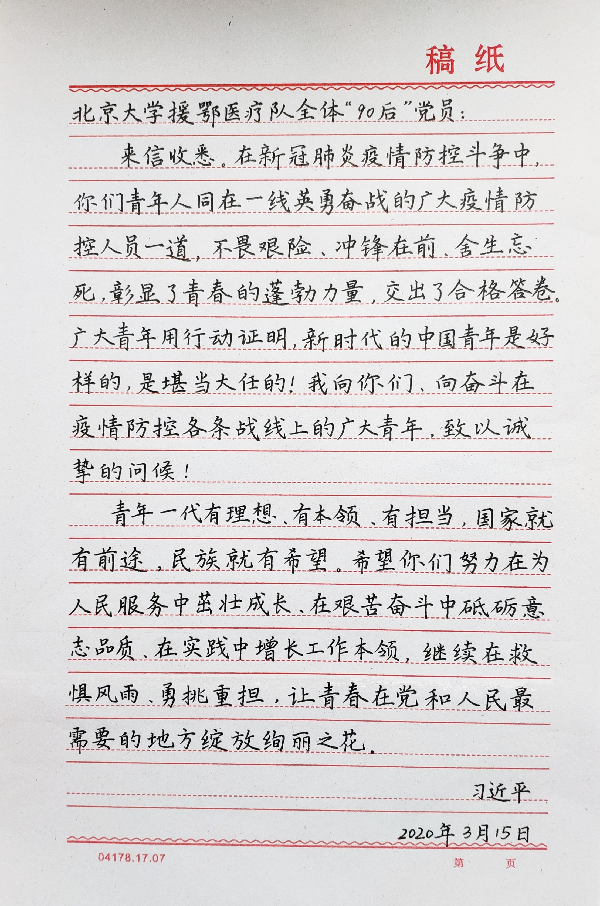 稿 纸
北京大学援鄂医疗队全体“90后”党员：
来信收悉。在新冠肺炎疫情防控斗争中，
你们青年人同在一线英勇奋战的广大疫情防
控人员一道，不畏艰险、冲锋在前、舍生忘
死，彰显了青春的蓬勃力量，交出了合格答卷。
广大青年用行动证明，新时代的中国青年是好
样的，是堪当大任的！我向你们、向奋斗在
疫情防控各条战线上的广大青年，致以诚
挚的问候！
青年一代有理想、有本领、有担当，国家就
有前途，民族就有希望。希望你们努力在为
人民服务中茁壮成长、在艰苦奋斗中砥砺意
志品质、在实践中增长工作本领，继续在救
惧风雨、勇挑重担，让青春在党和人民最
需要的地方绽放绚丽之花。
习近平
2020年3月15日
04178.17.07
第 页